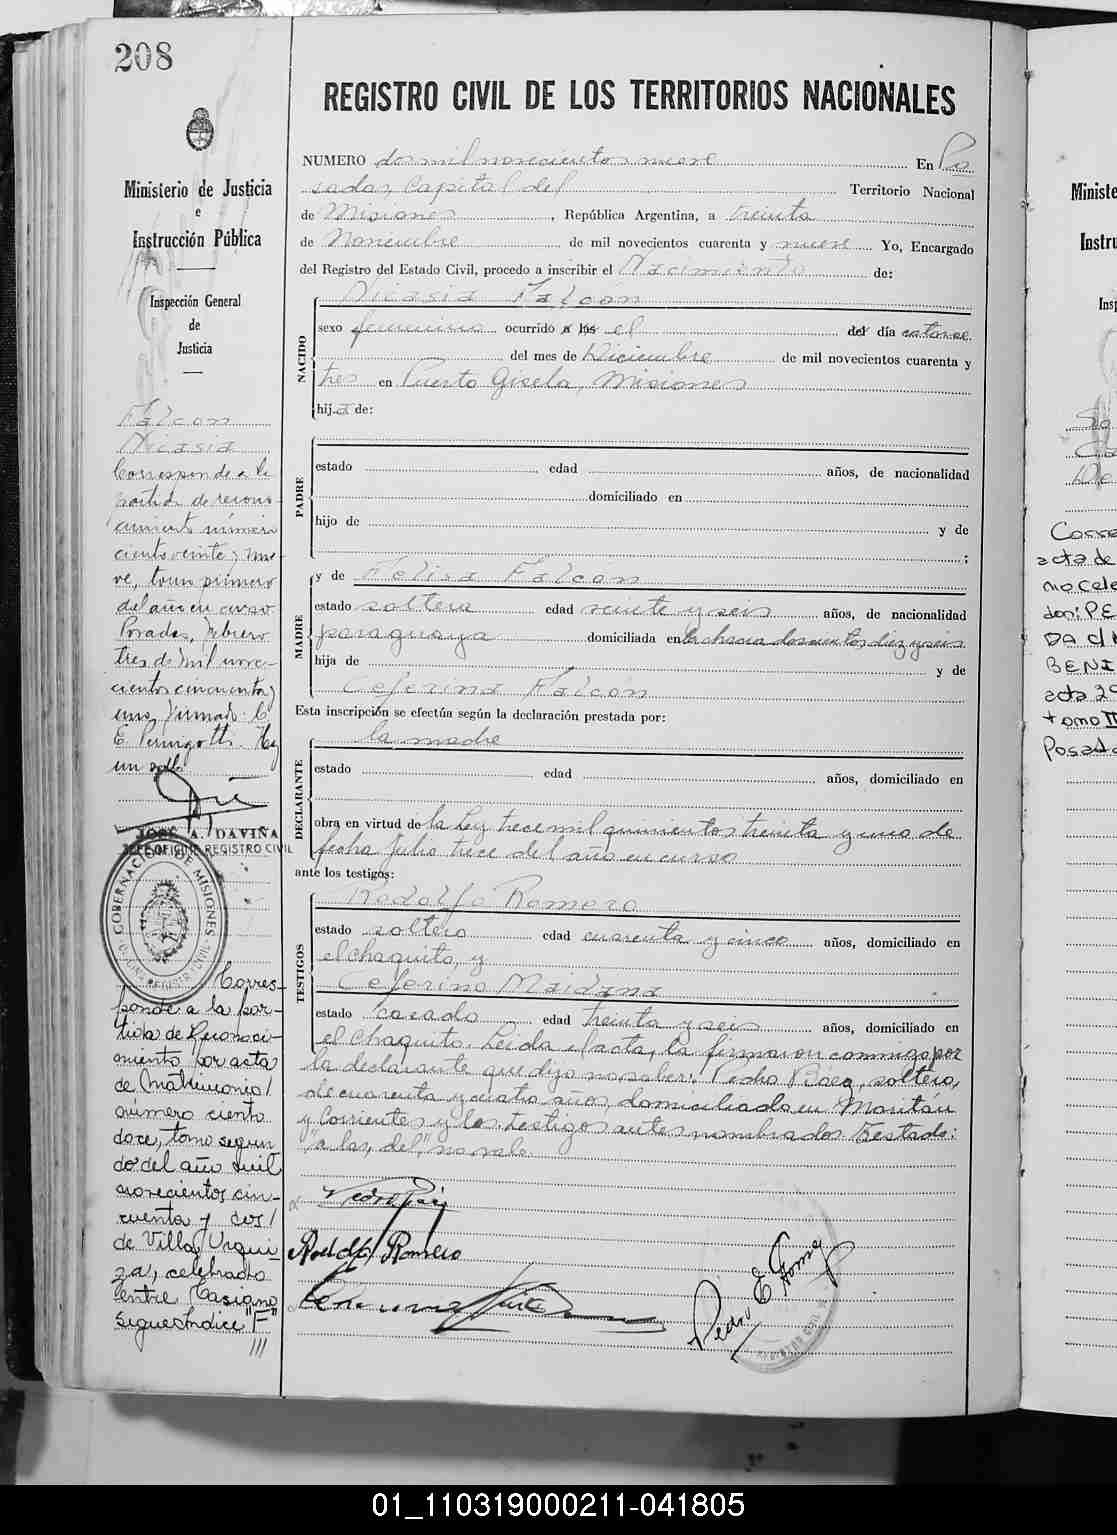 208
REGISTRO CIVIL DE LOS TERRITORIOS NACIONALES
Ministerio de Justicia
e
Instrucción Pública
Inspección General
de
Justicia
Falcon
Nicasia
Corresponde a la
partida de recono-
cimiento número
ciento veinte y nue-
ve, tomo primero
del año en curso
Posadas, febrero
tres de mil nove-
cientos cincuenta y
uno. Firmado: C.
E. Hay
un sello.
JOSE A. DAVIÑA
JEFE OFICINA REGISTRO CIVIL
GOBERNACIÓN DE MISIONES
REGISTRO CIVIL
Corres-
ponde a la par-
tida de Reconoci-
miento por acta
de Matrimonio/
número ciento
doce, tomo segun
do del año mil
novecientos cin-
cuenta y dos/
de Villa Urqui-
za, celebrado
entre Casiano
Sigue Indice "F"
///
NUMERO dos mil novecientos nueve En Po
sadas, Capital del Territorio Nacional
de Misiones, República Argentina, a treinta
de Noviembre de mil novecientos cuarenta y nueve Yo, Encargado
del Registro del Estado Civil, procedo a inscribir el Nacimiento de:
NACIDO
Nicasia Falcón
sexo femenino ocurrido a las el del día catorce
del mes de Diciembre de mil novecientos cuarenta y
tres en Puerto Gisela, Misiones
hija de:
PADRE
estado edad años, de nacionalidad
domiciliado en
hijo de y de
;
MADRE
y de Felisa Falcón
estado soltera edad veinte y seis años, de nacionalidad
paraguaya domiciliada en la chacra doscientos diez y seis
hija de y de
Ceferina Falcón
Esta inscripción se efectúa según la declaración prestada por:
DECLARANTE
la madre
estado edad años, domiciliado en
obra en virtud de la Ley trece mil quinientos treinta y uno de
fecha Julio trece del año en curso
ante los testigos:
TESTIGOS
Rodolfo Romero
estado soltero edad cuarenta y cinco años, domiciliado en
el chaquito, y
Ceferino Maidana
estado casado edad treinta y seis años, domiciliado en
el Chaquito. Leida el acta, la firmaron conmigo por
la declarante que dijo no saber: Pedro Báez, soltero,
de cuarenta y cuatro años, domiciliado en
y Corrientes y los testigos antes nombrados Testado:
"a las, del", no vale.
Pedro Báez
Rodolfo Romero
Pedro E Gomez
REGISTRO CIVIL
Ministe
Instru
Insp
acta de
no cele
don: PE
DA c/
BENI
acta 29
tomo II
Posada
01_110319000211-041805